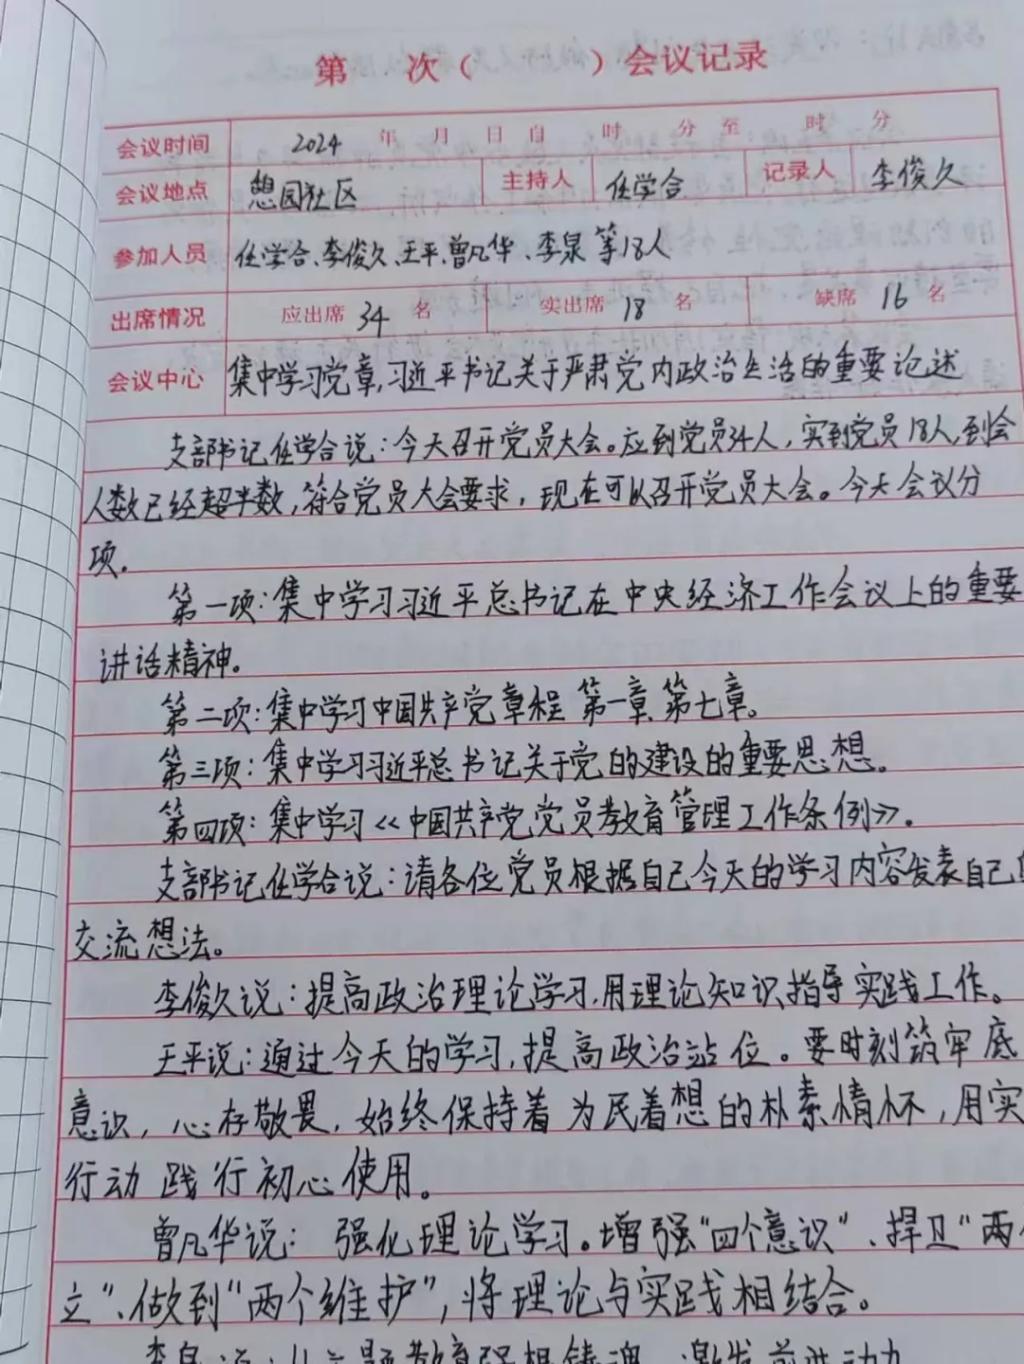 第 次( )会议记录
会议时间 2024 年 月 日 自 时 分 至 时 分
会议地点 憩园社区 主持人 任学合 记录人 李俊久
参加人员 任学合、李俊久、王平、曾凡华、李泉 等18人
出席情况 应出席 34 名 实出席 18 名 缺席 16 名
会议中心 集中学习党章,习近平书记关于严肃党内政治生活的重要论述
支部书记任学合说:今天召开党员大会。应到党员34人,实到党员18人,到会
人数已经超半数,符合党员大会要求,现在可以召开党员大会。今天会议分
项.
第一项:集中学习习近平总书记在中央经济工作会议上的重要
讲话精神。
第二项:集中学习中国共产党章程 第一章、第七章。
第三项:集中学习习近平总书记关于党的建设的重要思想。
第四项:集中学习《中国共产党党员教育管理工作条例》.
支部书记任学合说:请各位党员根据自己今天的学习内容发表自己
交流想法。
李俊久说:提高政治理论学习,用理论知识指导实践工作。
王平说:通过今天的学习,提高政治站位。要时刻筑牢底
意识,心存敬畏,始终保持着为民着想的朴素情怀,用实
行动践行初心使用。
曾凡华说:强化理论学习。增强“四个意识”、捍卫“两
立”、做到“两个维护”,将理论与实践相结合。